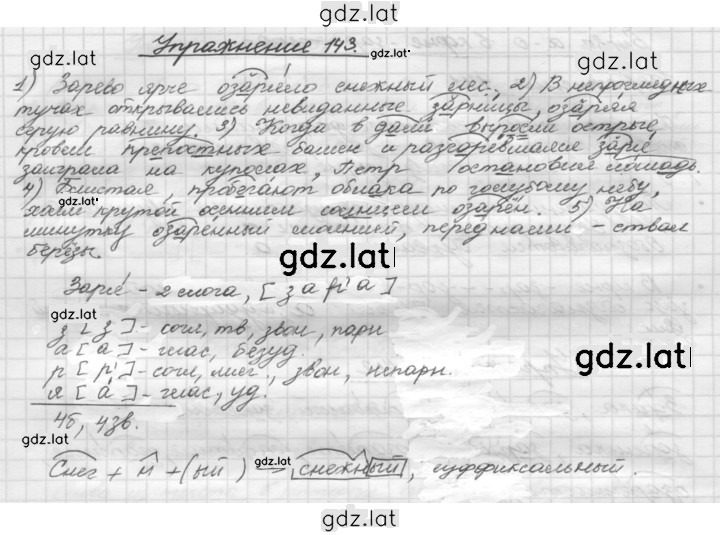 gdz.lat
gdz.lat
Упражнение 143.
gdz.lat
1) Зарево ярче озаряло снежный лес. 2) В непроглядных
тучах открывались невиданные зарницы, озаряя
серую равнину. 3) Когда в дали выросли острые
кровли крепостных башен и разгоревшаяся заря
заиграла на куполах, Петр остановил лошадь.
4) Блистая, пробегают облака по голубому небу,
gdz.lat
холм крутой осенним солнцем озарён. 5) На
минутку озаренный молнией, перед нами - ствол
берёзы.
gdz.lat
Заря - 2 слога, [з а р' а]
з [з] - согл, тв, звон, парн
а [а] - глас, безуд.
р [р'] - согл, мяг., звон, непарн.
gdz.lat
я [а] - глас, уд.
4б, 4зв.
gdz.lat
Снег + н + (ый) gdz.lat снежный, суффиксальный.
gdz.lat